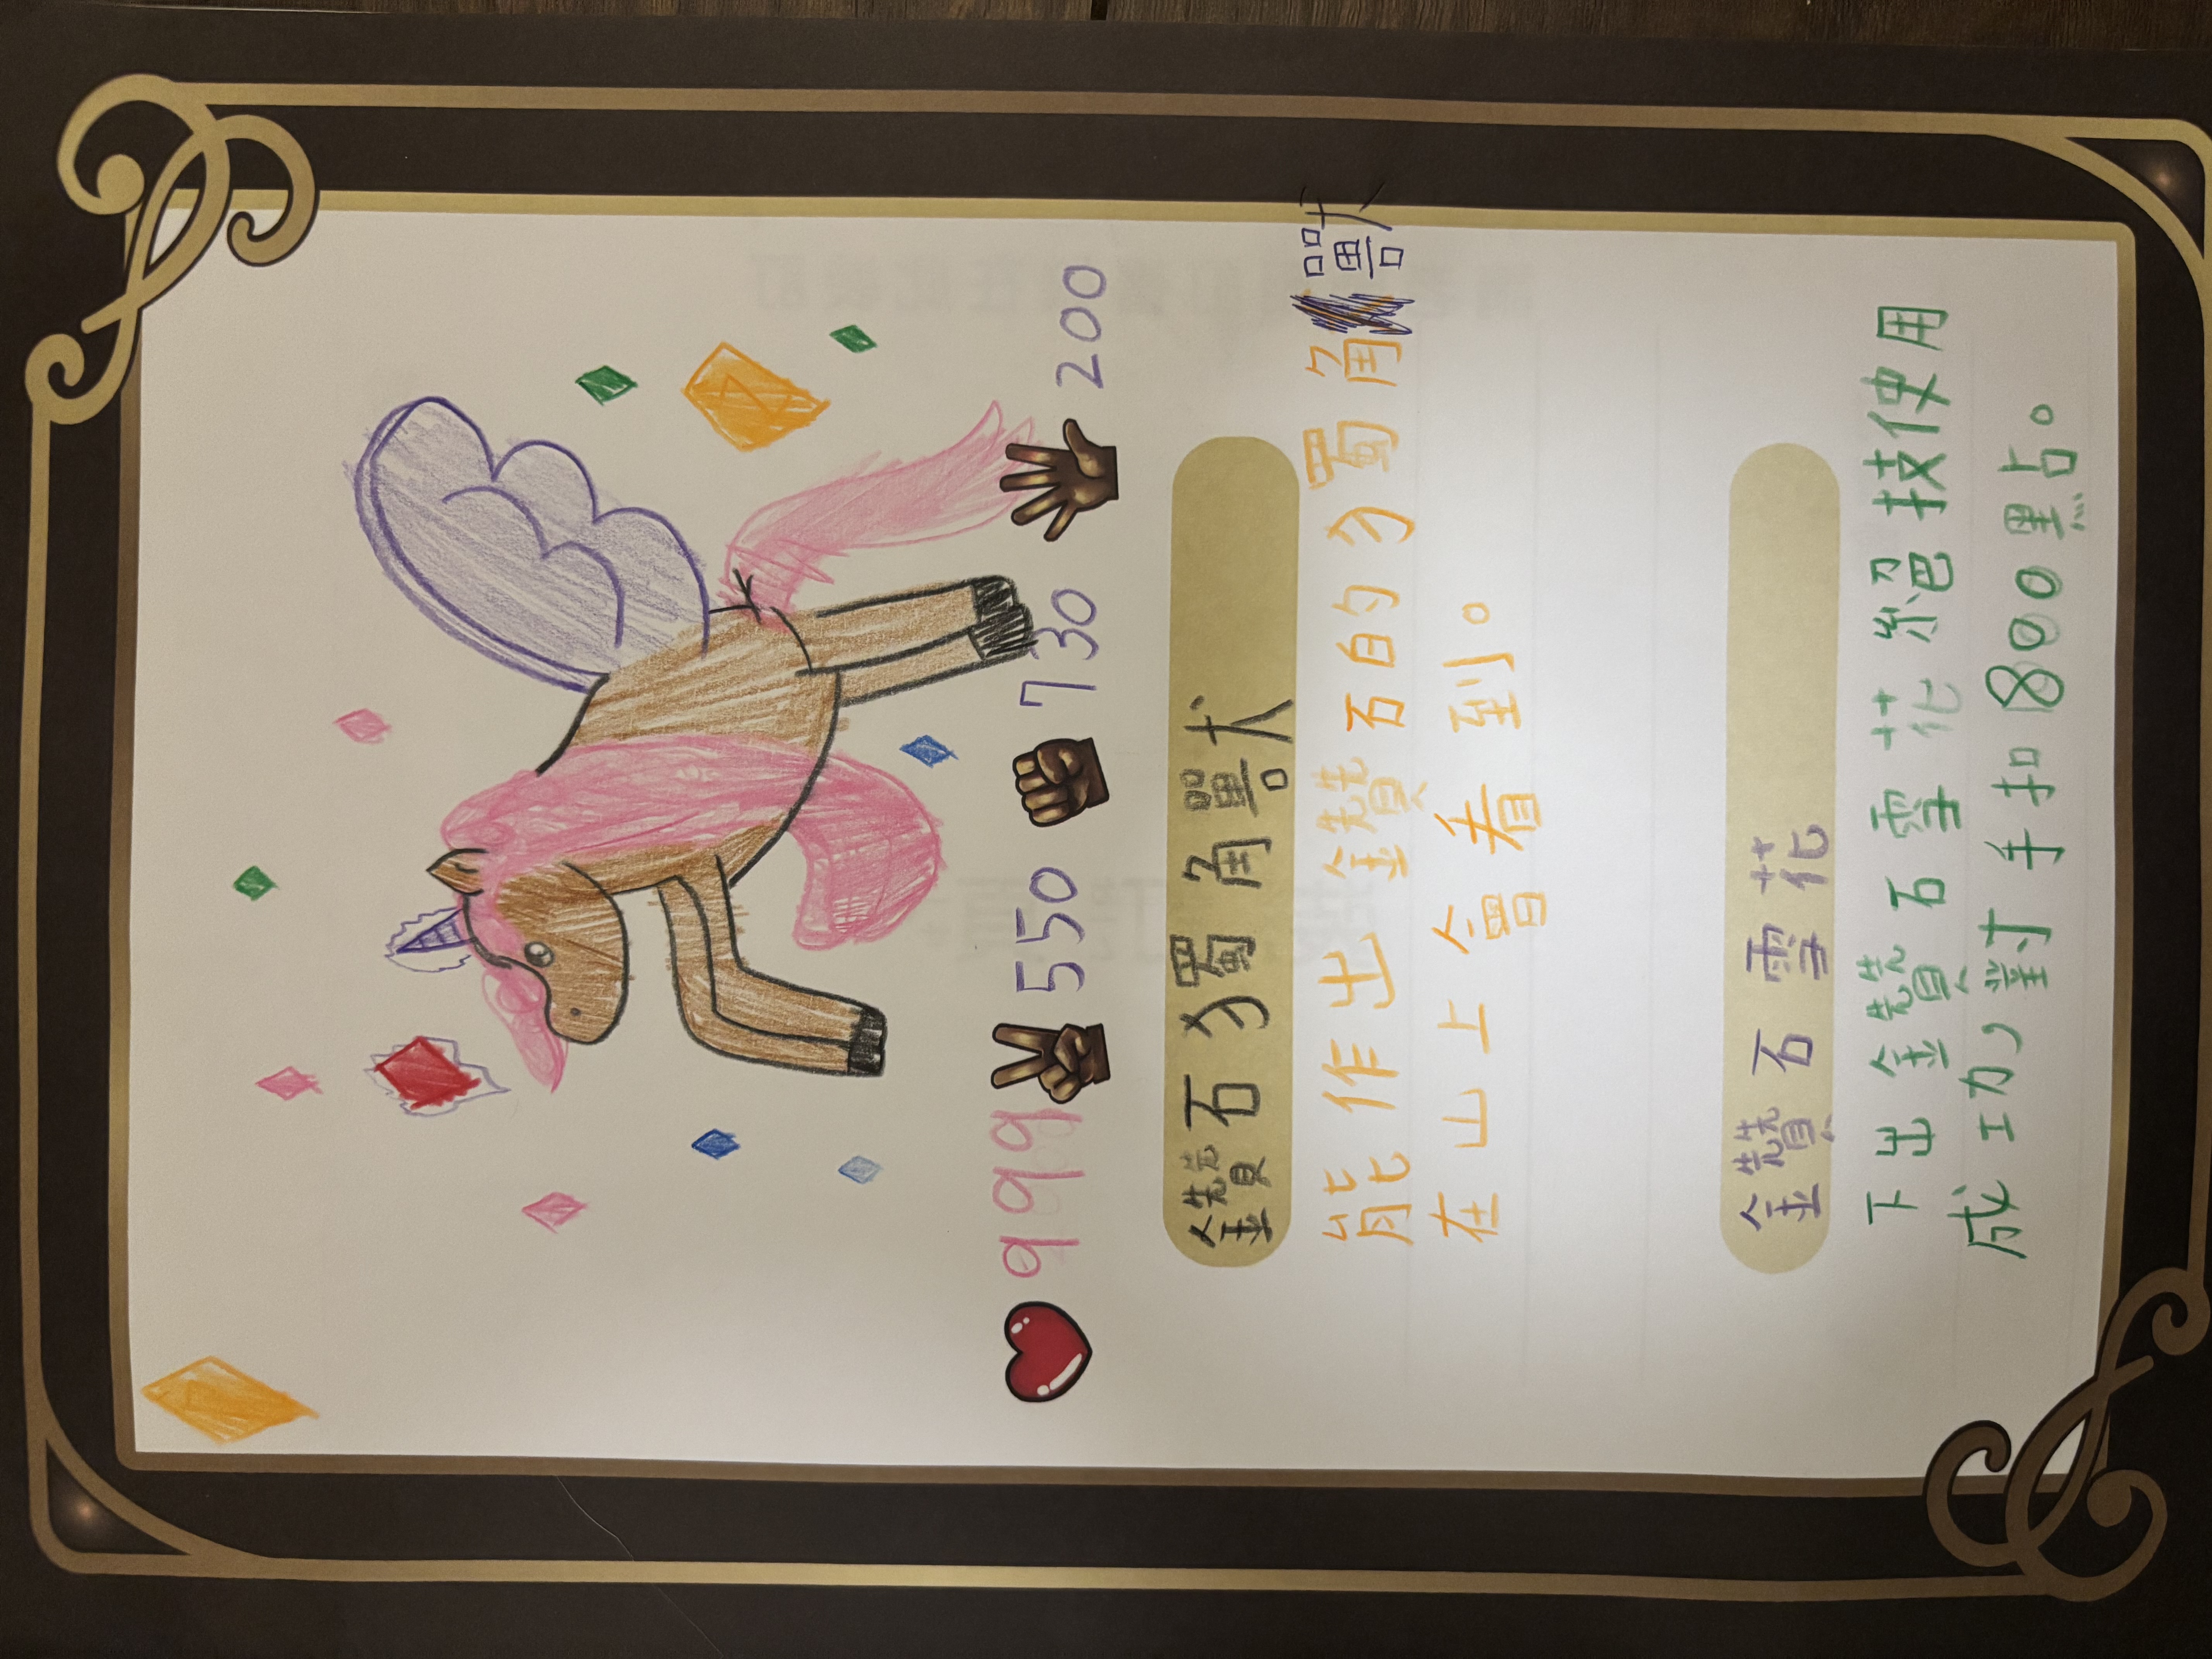 999 550 730 200
鑽石獨角獸
能作出鑽石的獨角獸
在山上會看到。
鑽石雪花
下出鑽石雪花絕技使用
成功，對手扣800點。